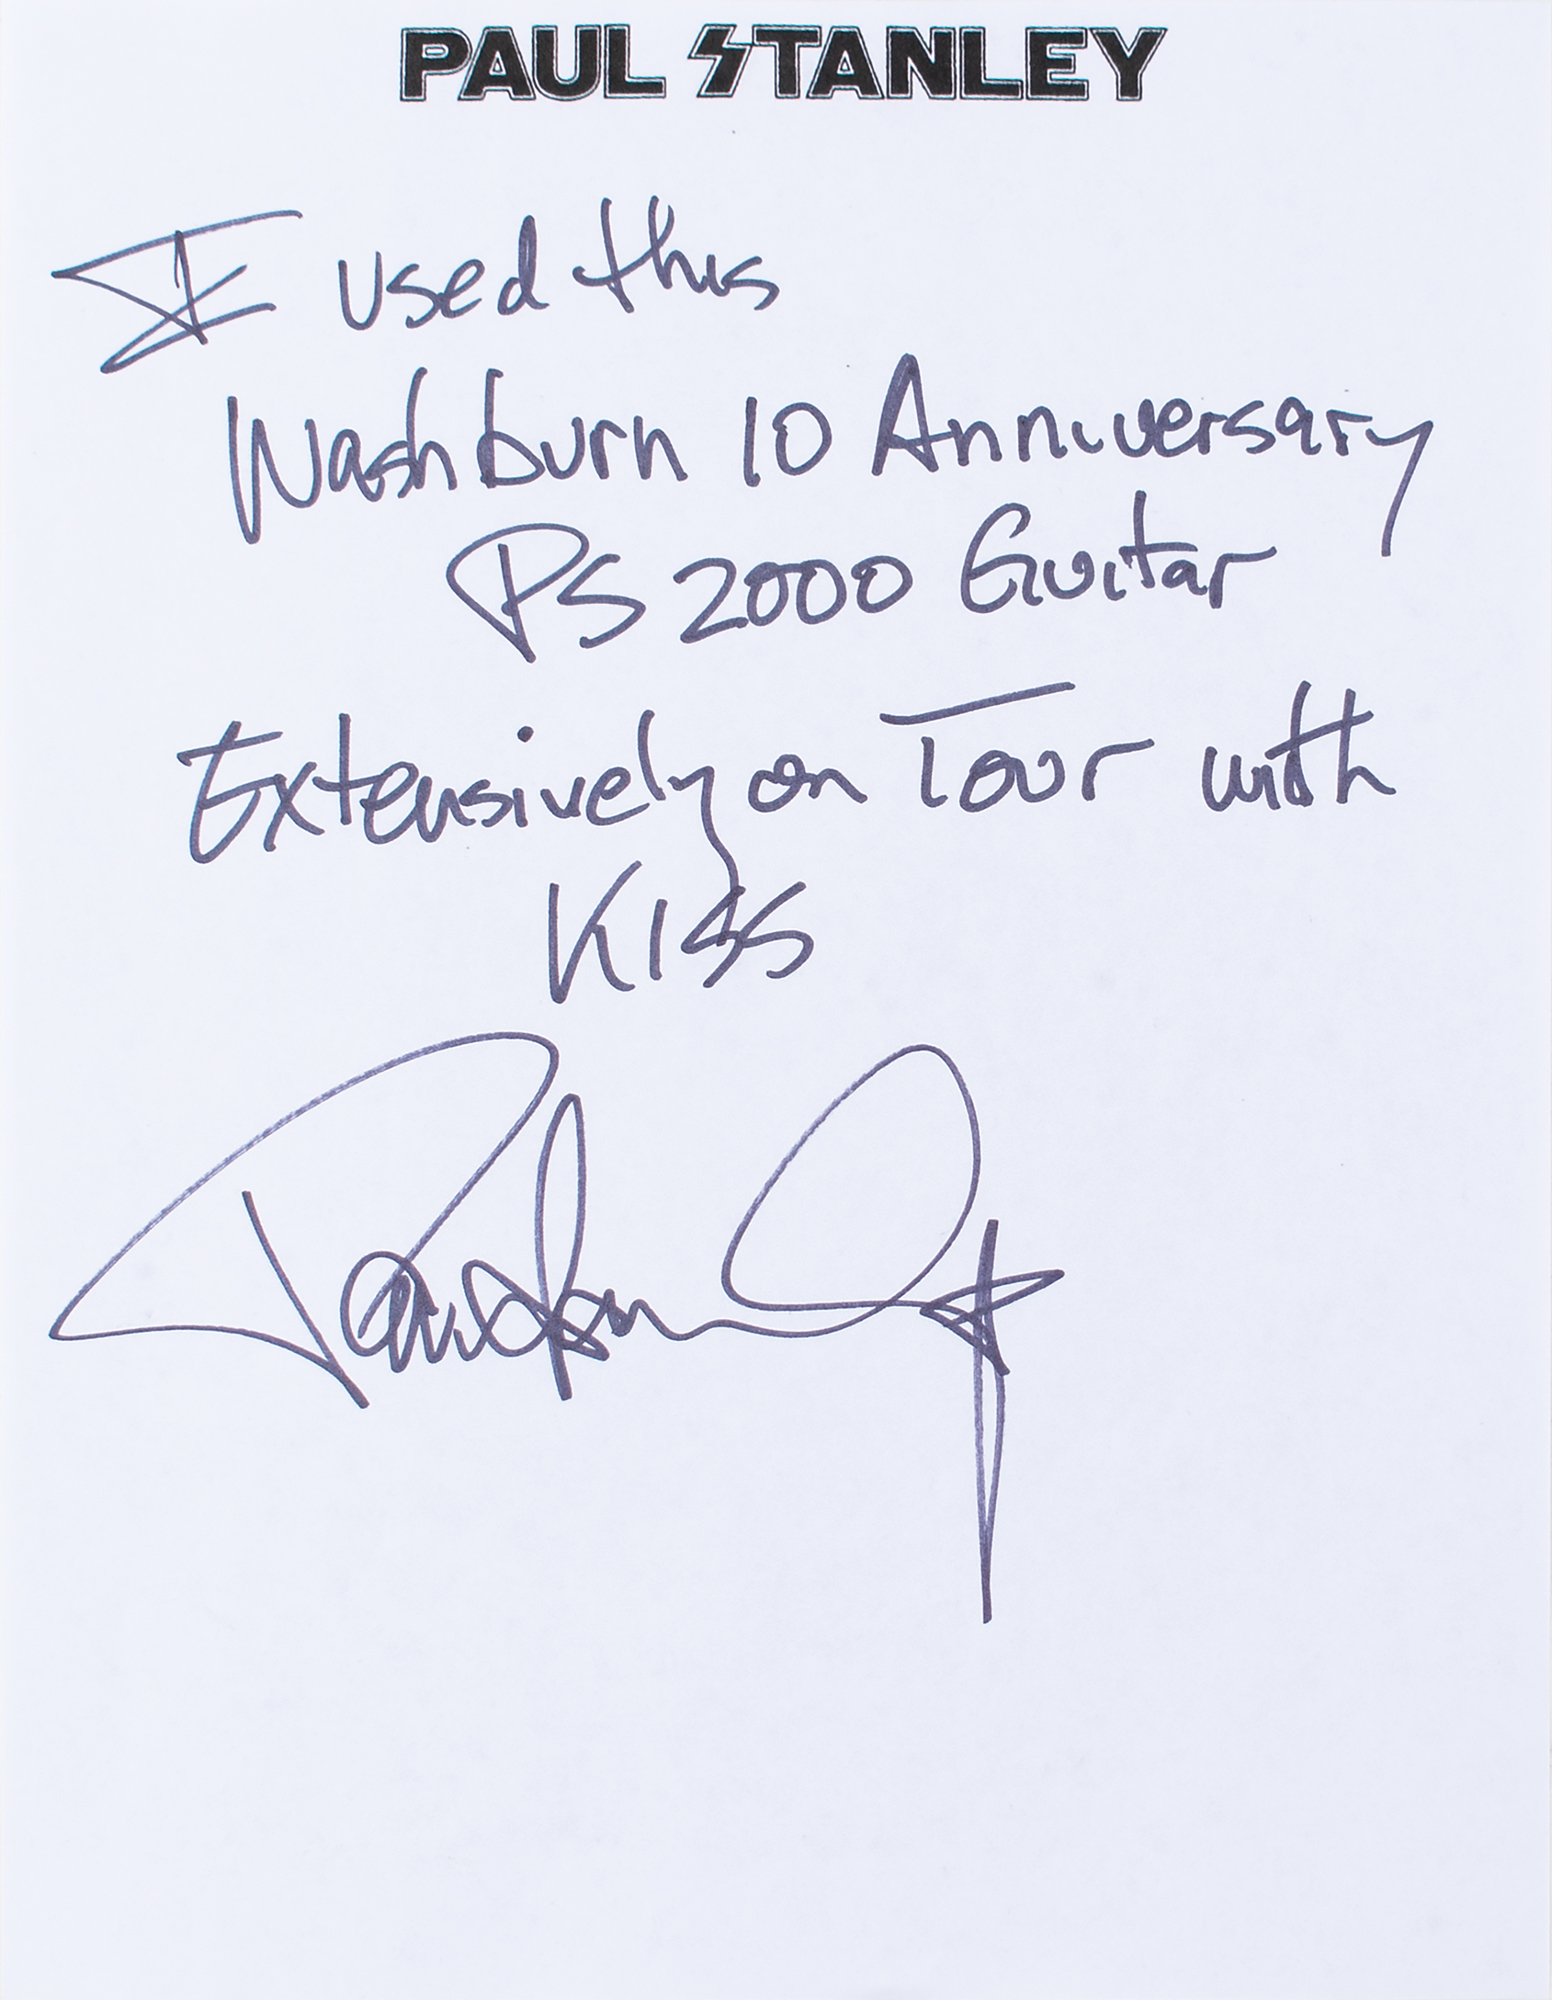 PAUL STANLEY
I used this
Washburn 10 Anniversary
PS 2000 Guitar
Extensively on Tour with
KISS
Paul Stanley